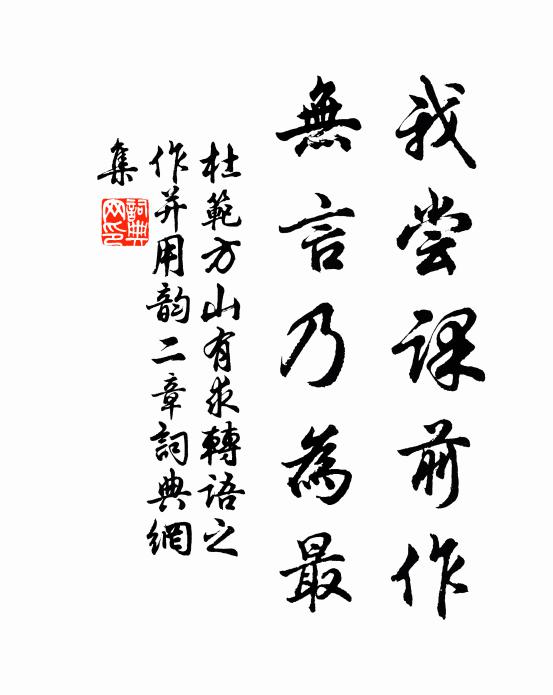 我尝课前作
無言乃為最
杜範方山有求轉語之
作并用韵二章詞典網
集
詞典网印